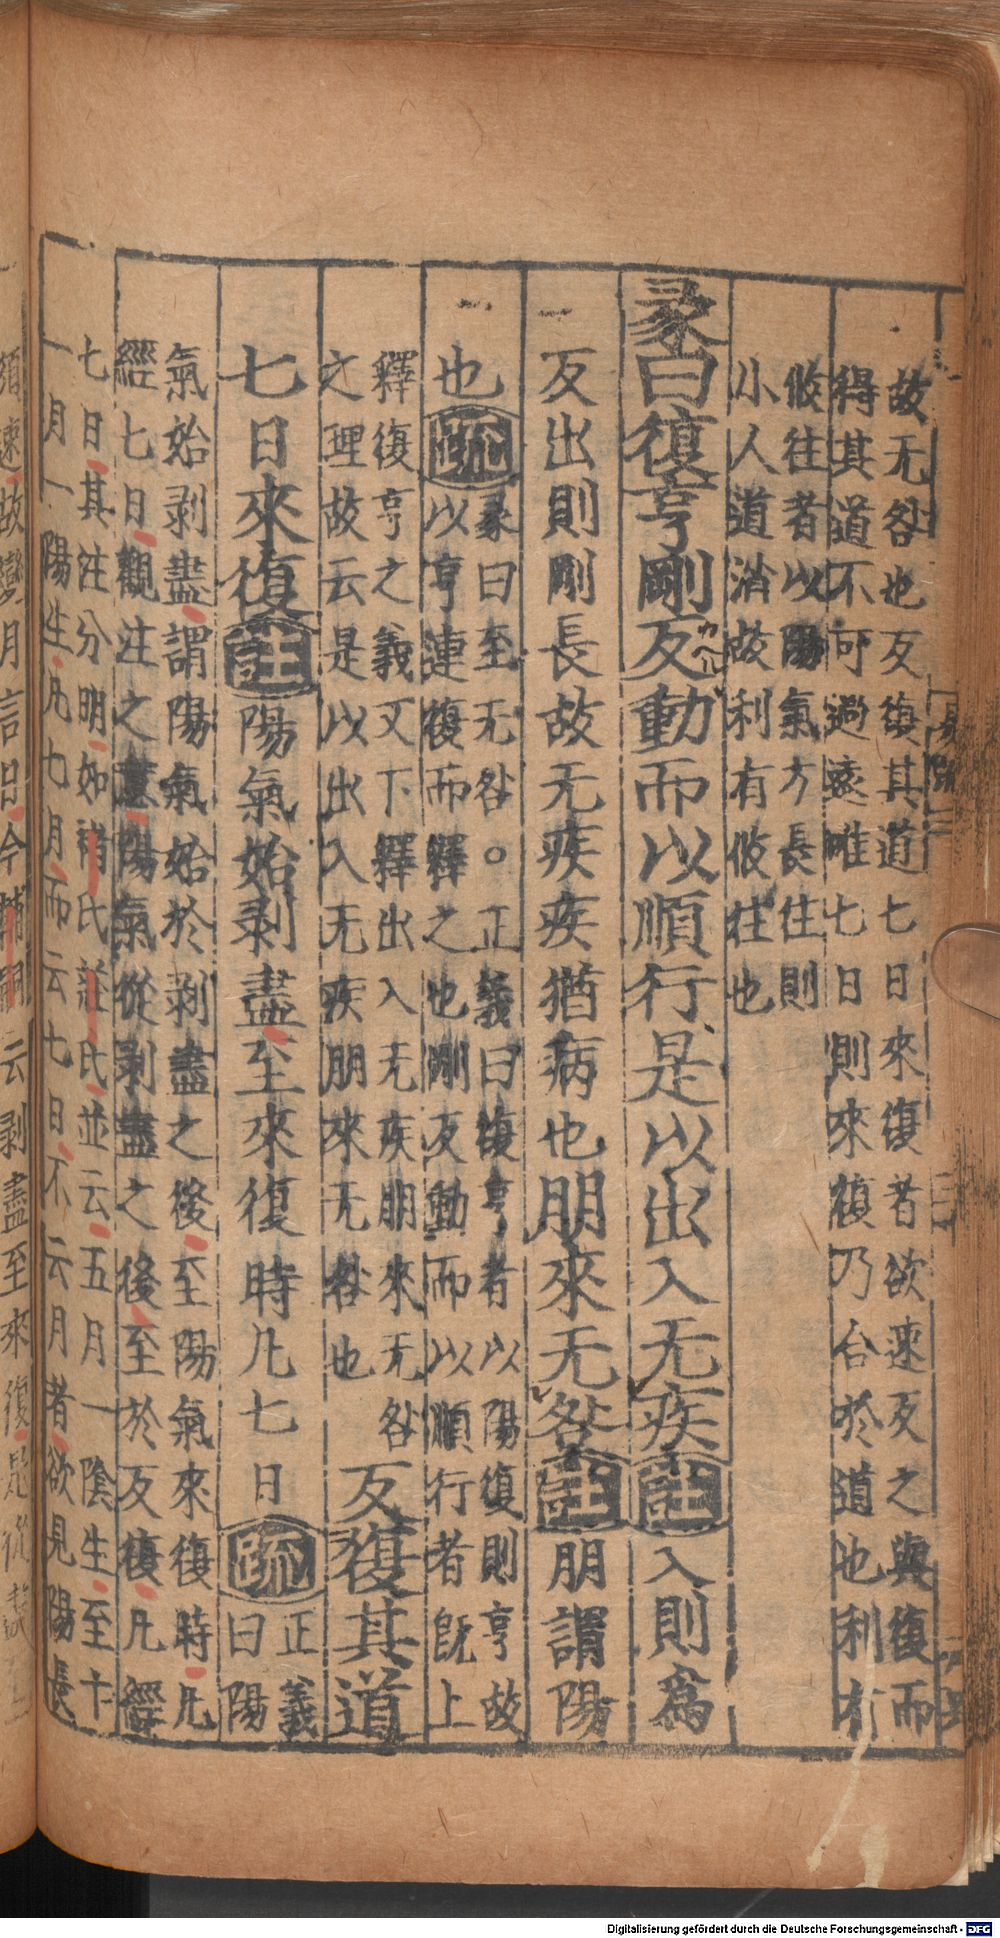 故无咎也反復其道七日來復者欲速反之與復而
得其道不可過遠唯七日則來復乃合於道也利有
攸往者以陽氣方長往則
小人道消故利有攸往也
彖曰復亨剛反動而以順行是以出入无疾註入則為
反出則剛長故无疾疾猶病也朋來无咎註朋謂陽
也疏彖曰至无咎。正義曰復亨者以陽復則亨故
以亨連復而釋之也剛反動而以順行者旣上
釋復亨之義又下釋出入无疾朋來无咎
之理故云是以出入无疾朋來无咎也
反復其道
七日來復註陽氣始剥盡至來復時凡七日疏正義
曰陽
氣始剥盡謂陽氣始於剥盡之後至陽氣來復時凡
經七日觀注之意陽氣從剥盡之後至於反復凡經
七日其注分明如褚氏莊氏並云五月一陰生至十
一月一陽生凡七月而云七日不云月者欲見陽長
須速故變月言日今輔嗣云剥盡至來復是從盡至
Digitalisierung gefördert durch die Deutsche Forschungsgemeinschaft - DFG